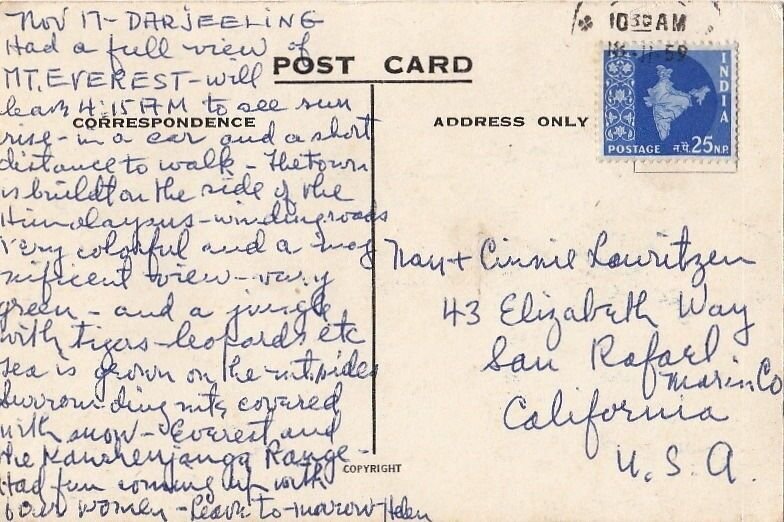 Nov 17 - DARJEELING
Had a full view of
MT. EVEREST - will
leave 4:15 AM to see sun
rise - in a car and a short
distance to walk - The town
is buildt on the side of the
Himalayans - winding roads
very colorful and a mag
nificent view - very
green - and a jungle
with tigers - leopards etc
tea is grown on the mt. sides
surrounding mts covered
with snow - Everest and
the Kanchenjanga Range -
Had fun coming up with
women - Leave to-morrow Helen
POST CARD
CORRESPONDENCE
ADDRESS ONLY
COPYRIGHT
10 30 AM
11·59
INDIA
POSTAGE न.पै. 25 N.P.
+ Cinnie Lauritzen
43 Elizabeth Way
San Rafael
Marin Co
California
U.S.A.